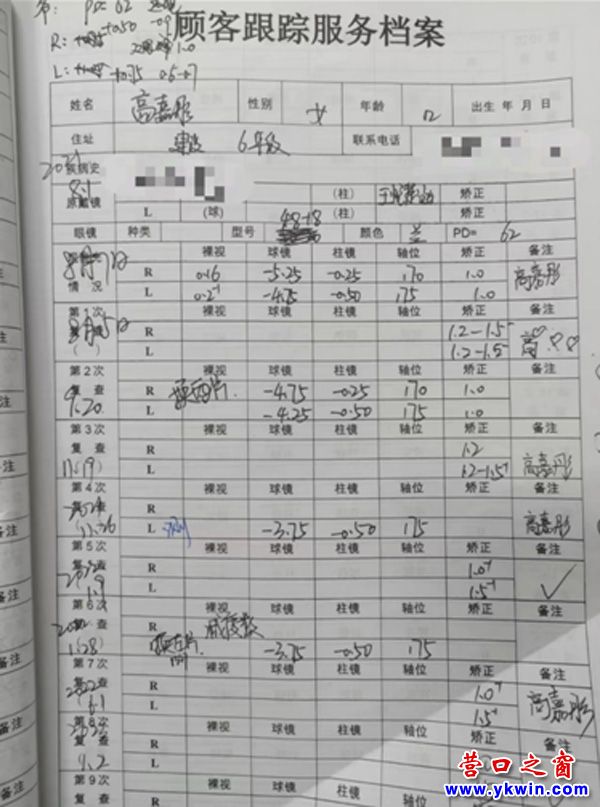 PD= 62
R: +0.50 1.0
L: +0.75 0.5-0.7
顾客跟踪服务档案
姓名 高嘉彤 性别 女 年龄 12 出生 年 月 日
住址 6年级 联系电话
2021
疾病史
8.1
原戴镜 (柱) 矫正
L (球) (柱) 矫正
眼镜 种类 型号 48-18 颜色 兰 PD= 62
裸视 球镜 柱镜 轴位 矫正 备注
8月1日 R 0.16 -5.25 -0.25 170 1.0 高嘉彤
情况 L 0.2⁺ -4.75 -0.50 175 1.0
第1次 裸视 球镜 柱镜 轴位 矫正 备注
8月5日 R 1.2-1.5
( ) L 1.2-1.5
第2次 裸视 球镜 柱镜 轴位 矫正 备注
复查 R 换两片 -4.75 -0.25 170 1.0
9.20 L -4.25 -0.50 175 1.0
第3次 裸视 球镜 柱镜 轴位 矫正 备注
复查 R 1.2
L 1.2-1.5 高嘉彤
第4次 裸视 球镜 柱镜 轴位 矫正 备注
R
11.26 L -3.75 -0.50 175 高嘉彤
第5次 裸视 球镜 柱镜 轴位 矫正 备注
R 1.0
1.9 L 1.5
第6次 裸视 球镜 柱镜 轴位 矫正 备注
2022 查
1.28 换左片 -3.75 -0.50 175
第7次 裸视 球镜 柱镜 轴位 矫正 备注
2022 R 1.0 高嘉彤
L 1.5
第8次 裸视 球镜 柱镜 轴位 矫正 备注
复查 R
L
第9次 裸视 球镜 柱镜 轴位 矫正 备注
复查 R
营口之窗
www.ykwin.com